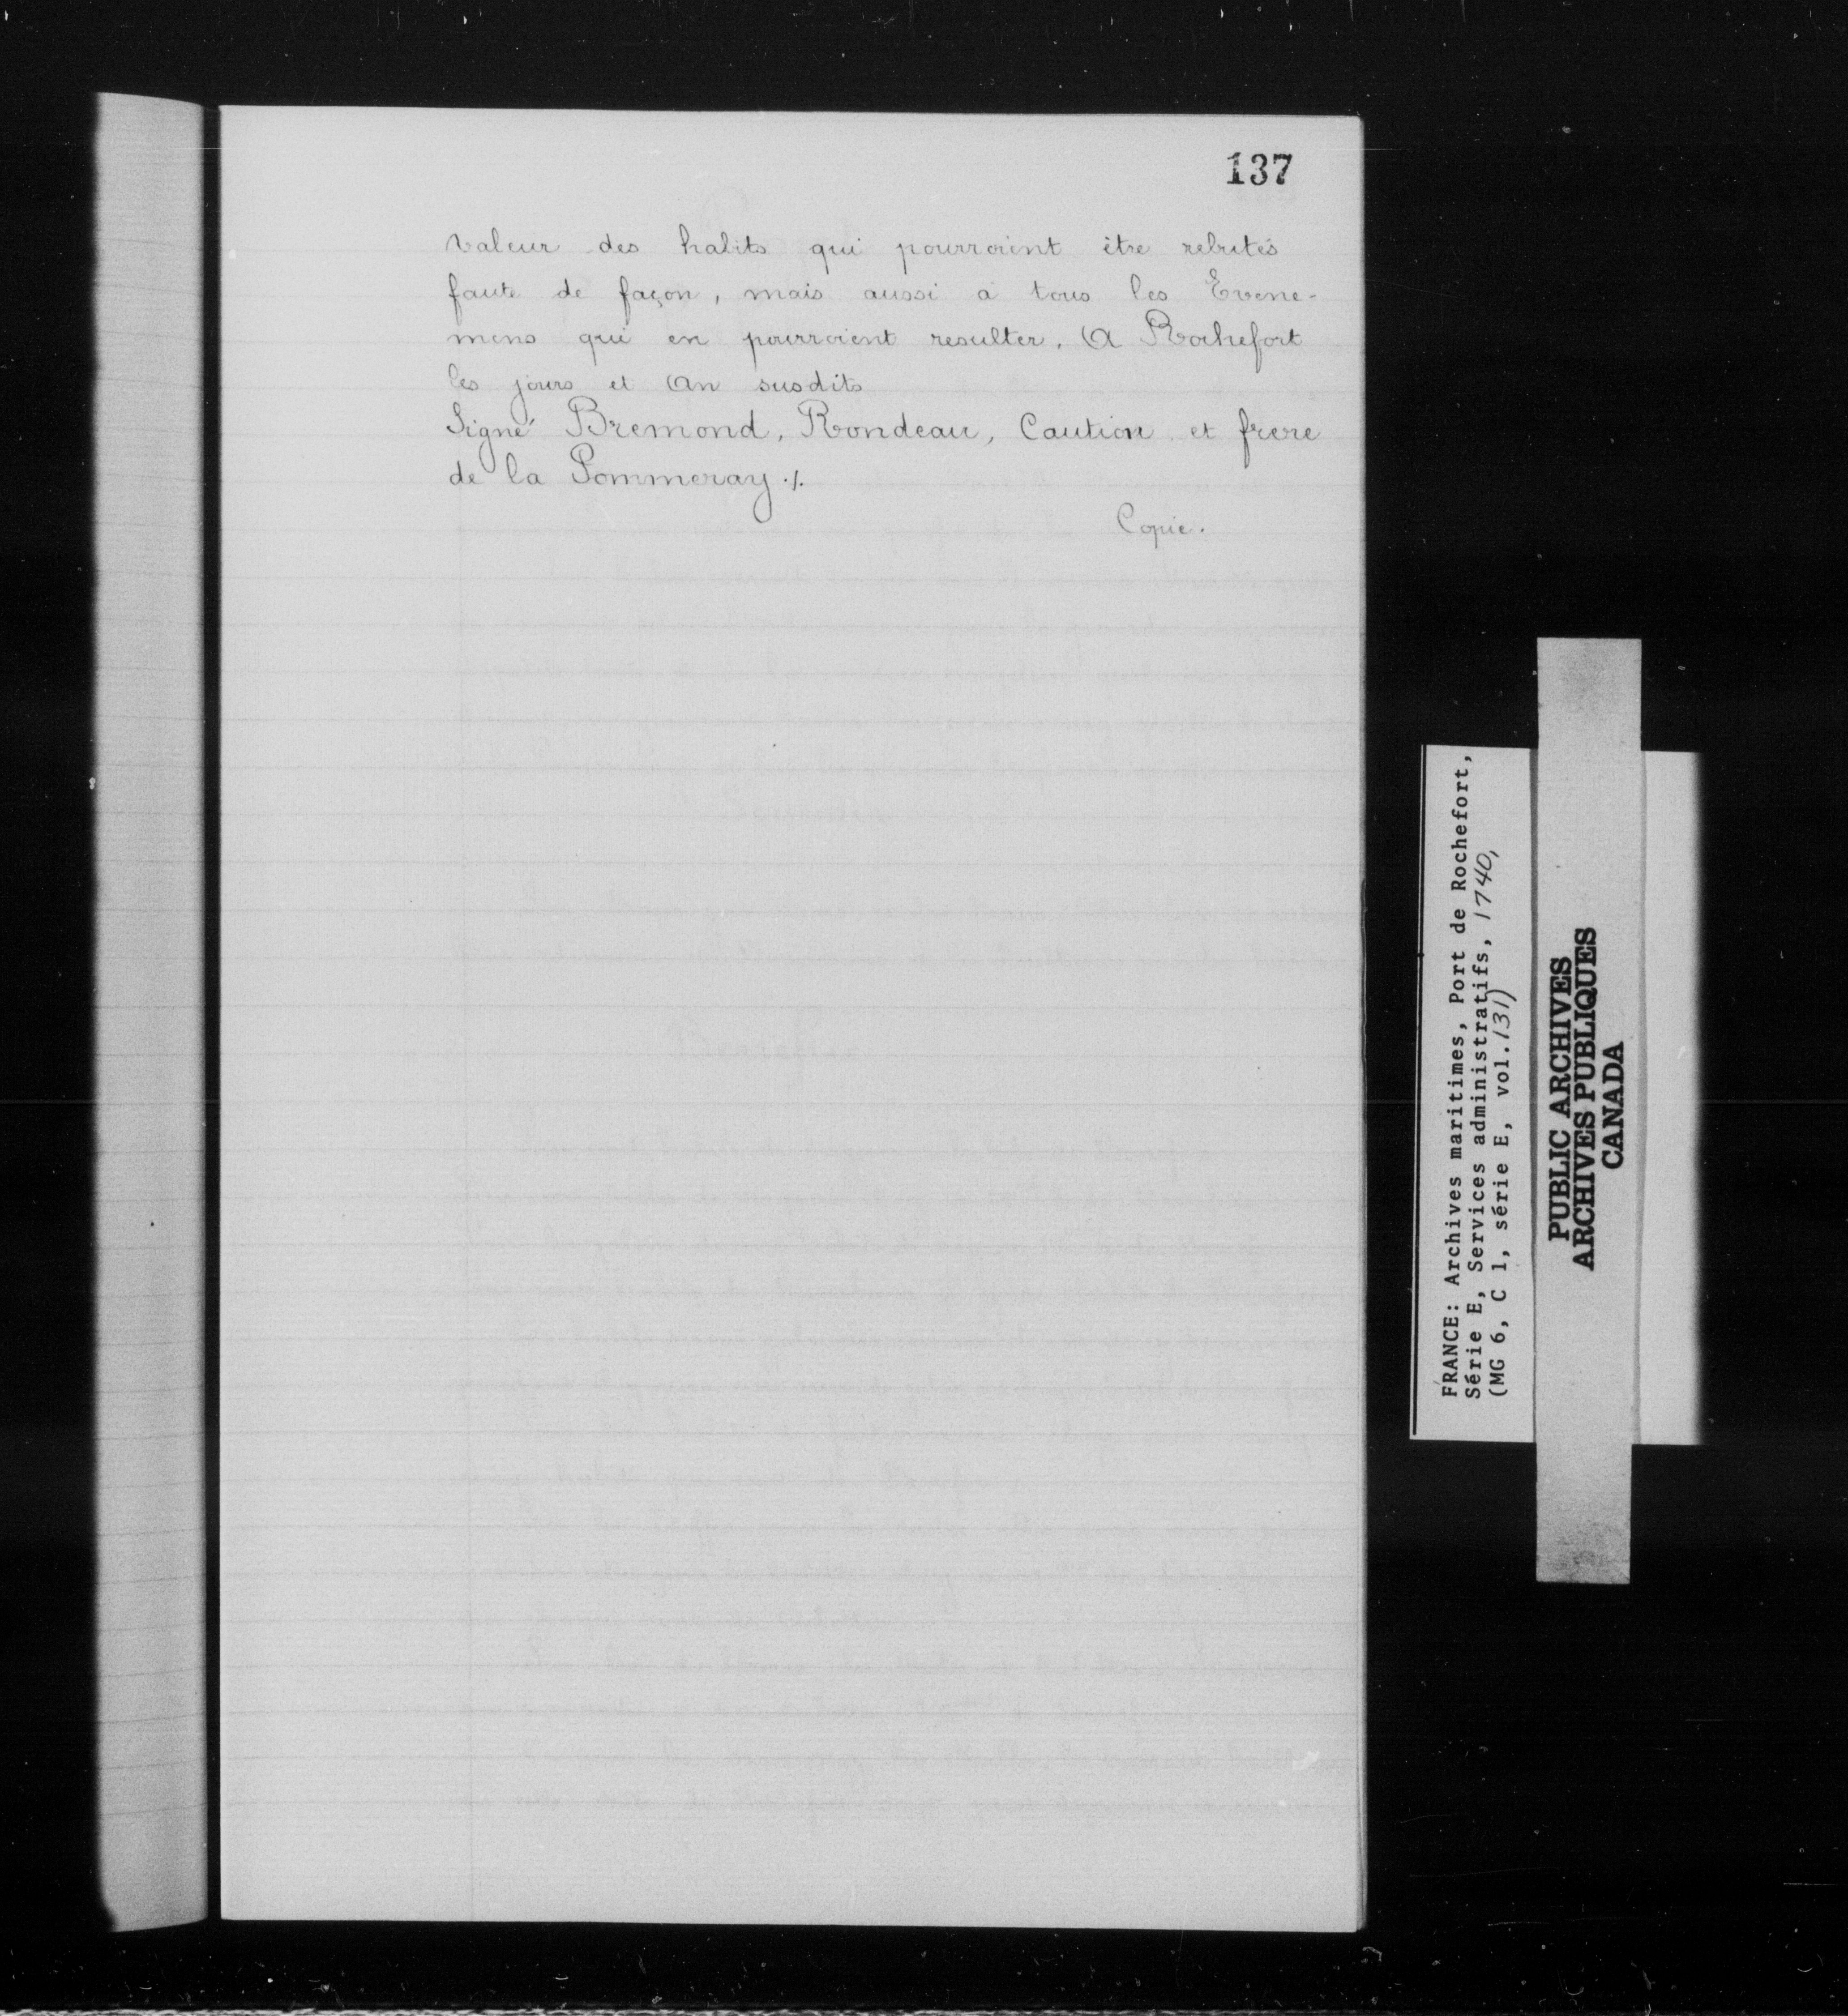 137
valeur des habits qui pourroient être rebutés
faute de façon, mais aussi a tous les Evene-
mens qui en pourroient resulter. A Rochefort
les jours et An susdits
Signé Bremond, Rondeau, Caution et frere
de la Pommeray ./.
Copie.
FRANCE: Archives maritimes, Port de Rochefort,
Série E, Services administratifs, 1740,
(MG 6, C 1, série E, vol. 131)
PUBLIC ARCHIVES
ARCHIVES PUBLIQUES
CANADA